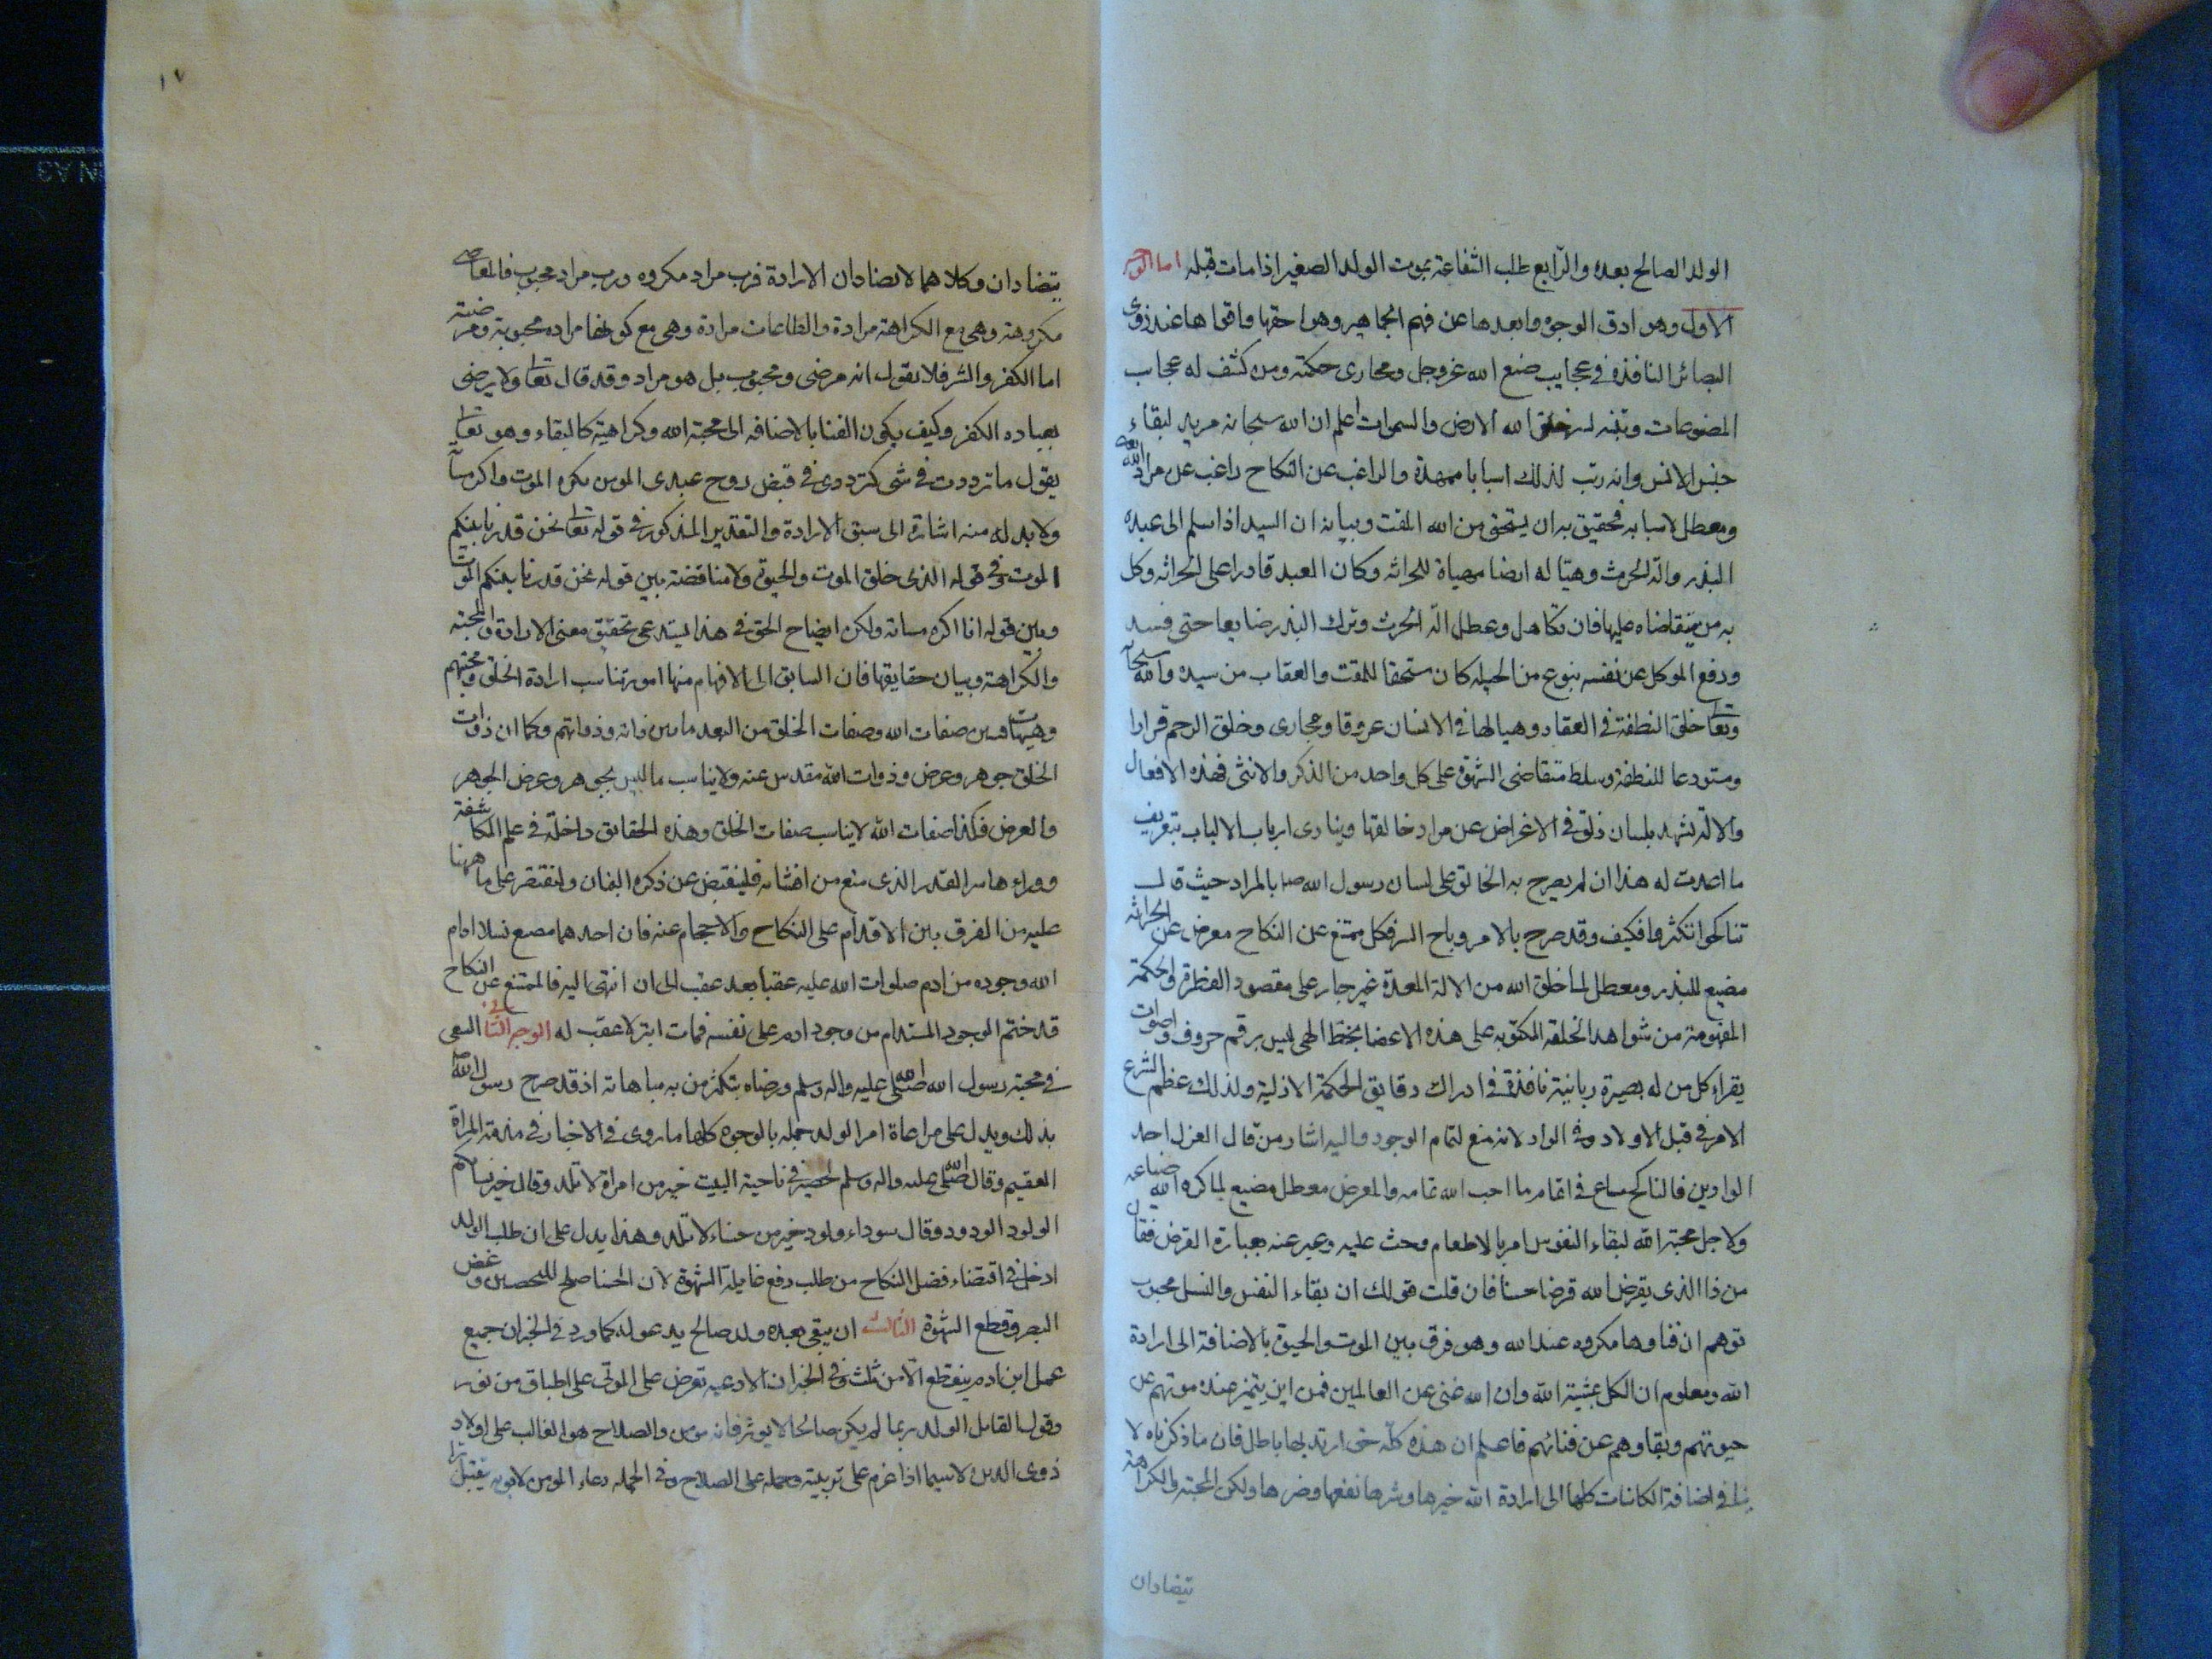 الولد الصالح بعده والرابع طلب الشفاعة بموت الولد الصغير اذا مات قبله اما الوجه
الاول وهو ادق الوجوه وابعدها عن فهم الجماهير وهو احقها واقواها عند ذوى
البصائر النافذه فى عجايب صنع الله عزوجل ومجارى حكمته ومن كشف له عجايب
المصنوعات خلق الله الارض والسموات اعلم ان الله سبحانه مريد لبقاء
جنس الانس وانه رتب لذلك اسبابا ممهدة والراغب عن النكاح راغب عن مراد الله
ومعطل لاسبابه فحقيق به ان يستحق من الله المقت وبيانه ان السيد اذا سلم الى عبده
البذر والة الحرث وهيّا له ارضا مهياة للحراثه وكان العبد قادرا على الحراثه وكل
به من يتقاضاه عليها فان تكاهل وعطل الة الحرث وترك البذر ضايعا حتى فسد
ودفع الموكل عن نفسه بنوع من الحيله كان مستحقا للمقت والعقاب من سيده والله سبحانه
وتعا خلق النطفة فى الفقار وهيا لها فى الانسان عروقا ومجارى وخلق الرحم قرارا
ومستودعا للنطفة وسلط متقاضى الشهوة على كل واحد من الذكر والانثى فهذه الافعال
والالة تشهد بلسان ذلق فى الاغراض عن مراد خالقها وينادى ارباب الالباب بتعريف
ما اعدت له هذا ان لم يصرح به الخالق على لسان رسول الله صلى بالمراد حيث قال
تناكحوا تكثروا فكيف وقد صرح بالامر وباح السر فكل ممتنع عن النكاح معرض عن الحراثه
مضيع للبذر ومعطل لما خلق الله من الالة المعدة غير جار على مقصود الفطرة والحكمة
المفهومة من شواهد الخلقة المكتوبه على هذه الاعضا بخط الهى ليس برقم حروف واصوات
يقراء كل من له بصيرة ربانية نافذة فى ادراك دقايق الحكمة الازلية ولذلك عظم الشرع
الامر فى قتل الاولاد وفى الواد لانه منع لتمام الوجود واليه اشار من قال العزل احد
الوادين فالناكح ساع فى اتمام ما احب الله تمامه والمعرض معطل مضيع لما كره الله ضياعه
ولاجل محبة الله لبقاء النفوس امر بالاطعام وحث عليه وعبر عنه بعبارة القرض فقال
من ذا الذى يقرض الله قرضا حسنا فان قلت قولك ان بقاء النفس والنسل محبوب
توهم ان فناوها مكروه عند الله وهو فرق بين الموت والحيوة بالاضافة الى ارادة
الله ومعلوم ان الكل بمشية الله وان الله غنى عن العالمين فمن اين يتميز عنده موتهم عن
حيوتهم وبقاوهم عن فنائهم فاعلم ان هذه كلمة حق اريد بها باطل فان ما ذكرناه لا
ينافى اضافة الكائنات كلها الى ارادة الله خيرها وشرها نفعها وضرها ولكن المحبة والكراهة
تيضادان
١٧
يتضادان وكلاهما لا يضادان الارادة فرب مراد مكروه ورب مراد محبوب فالمعاصى
مكروهة وهى مع الكراهة مرادة والطاعات مرادة وهى مع كونها مراده محبوبة ومرضية
اما الكفر والشر فلا نقول انه مرضى ومحبوب بل هو مراد وقد قال تعا ولا يرضى
بعباده الكفر وكيف يكون الفنا بالاضافه الى محبة الله وكراهية كالبقاء وهو تعا
يقول ما ترددت فى شى كترددى فى قبض روح عبدى المومن يكره الموت واكره مساته
ولابد له منه اشارة الى سبق الارادة والتقدير المذكور فى قوله تعا نحن قدرنا بينكم
الموت وفى قوله الذى خلق الموت والحيوة ولا مناقضة بين قوله نحن قدرنا بينكم الموت
وبين قوله انا اكره مساته ولكن ايضاح الحق فى هذا يستدعى تحقيق معنى الارادة والمحبة
والكراهة وبيان حقايقها فان السابق الى الافهام منها امور تناسب ارادة الخلق ومحبتهم
وهيهات فبين صفات الله وصفات الخلق من البعد ما بين ذاته وذواتهم وكما ان ذوات
الخلق جوهر وعرض وذوات الله مقدس عنه ولا يناسب ما ليس بجوهر وعرض الجوهر
والعرض فكذا صفات الله لا يناسب صفات الخلق وهذه الحقائق داخلة فى علم المكاشفة
ووراءها سر القدر الذى منع من افشائه فلينقبض عن ذكره العنان ولنقتصر على ما ههنا
عليه من الفرق بين الاقدام على النكاح والاحجام عنه فان احدهما مضيع نسلا ادام
الله وجوده من ادم صلوات الله عليه عقبا بعد عقب الى ان انتهى اليه فالممتنع عن النكاح
قد ختم الوجود المستدام من وجود ادم على نفسه فمات ابتر لا عقب له الوجه الثانى السعى
فى محبة رسول الله صلى الله عليه واله وسلم ورضاه بتكثير من به مباهاته اذ قد صرح رسول الله
بذلك ويدل على مراعاة امر الولد جمله بالوجوه كلها ما روى فى الاخبار فى مذمة المراة
العقيم وقال صلى الله عليه واله وسلم لحصير فى ناحية البيت خير من امراة لا تلد وقال خير نسائكم
الولود الودود وقال سوداء ولود خير من حسناء لا تلد وهذا يدل على ان طلب الولد
ادخل فى اقتضاء فضل النكاح من طلب دفع غايلة الشهوة لان الحسنا صلح للتحصين وغض
البصر وقطع الشهوة الثالث ان يبقى بعده ولد صالح يدعو له كما ورد فى الخبر ان جميع
عمل ابن ادم ينقطع الا من ثلث وفى الخبر ان الادعيه تعرض على الموتى على اطباق من نور
وقول القايل الولد ربما لم يكن صالحا لا يوثر فانه مومن والصلاح هو الغالب على اولاد
ذوى الدين لاسيما اذا عزم على تربيته وحمله على الصلاح وفى الجمله دعاء المومن لابويه